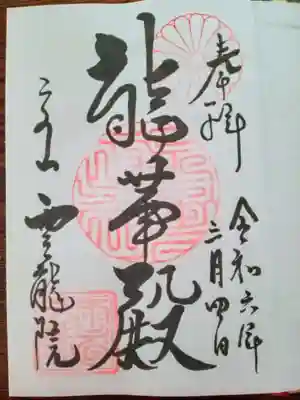 奉拝
令和六年
三月四日
龍華殿
泉山 雲龍院